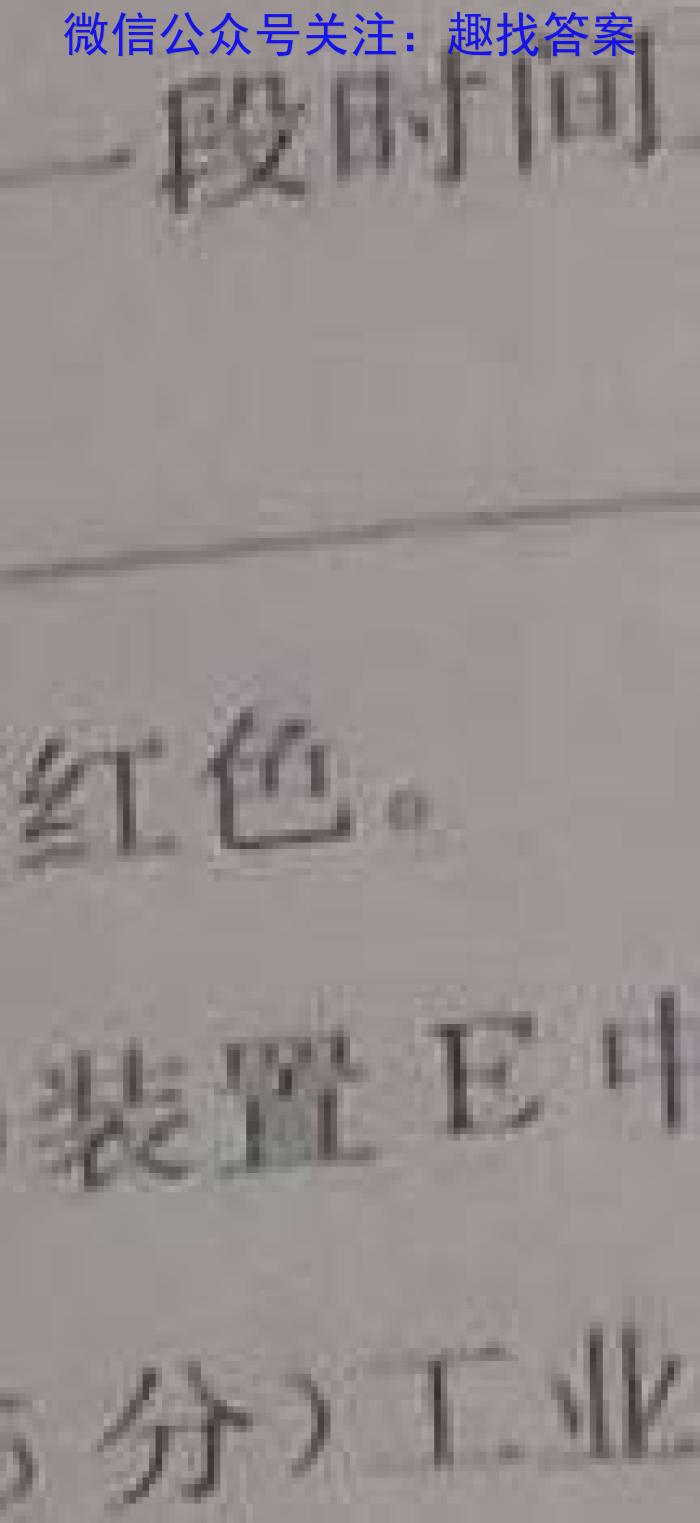 微信公众号关注：趣找答案
一段时间
红色。
装置E中
分）工业